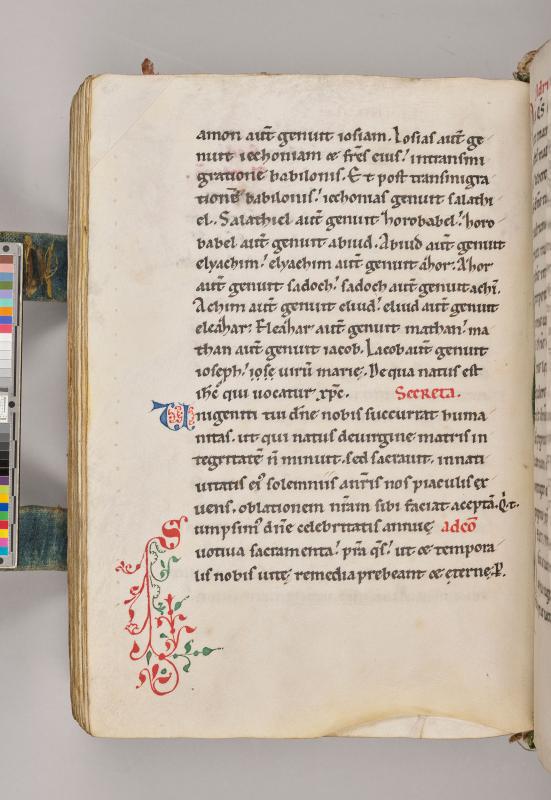 amon aut̄ genuit iosiam. Iosias aut̄ ge
nuit iechoniam & fr̄es eius.' intransmi
gratione babilonis. Et post transmigra
tionē babilonis.' iechonias genuit salathi
el. Salathiel aut̄ genuit horobabel.' horo
babel aut̄ genuit abiud. Abiud aut̄ genuit
elyachim.' elyachim aut̄ genuit ahor. Ahor
aut̄ genuit sadoch.' sadoch aut̄ genuit achī.
Achim aut̄ genuit eliud.' eliud aut̄ genuit
eleahar: Eleahar aut̄ genuit mathan.' ma
than aut̄ genuit iacob. Iacob aut̄ genuit
ioseph.' iose uirū marię. De qua natus est
ih̄c qui uocatur xp̄c. Secreta.
Unigeniti tui dn̄e nobis succurrat huma
nitas. ut qui natus deuirgine matris in
tegritatē n̄ minuit. sed sacrauit. innati
uitatis ei᷒ solemniis an̄ris nos piaculis ex
uens. oblationem nr̄am sibi faciat acceptā. Q̇. t.
Sumpsim᷒ dn̄e celebritatis annuę adcō
uotiua sacramenta.' pr̄a qs̄.' ut & tempora
lis nobis uitę remedia prebeant & eternę. P.